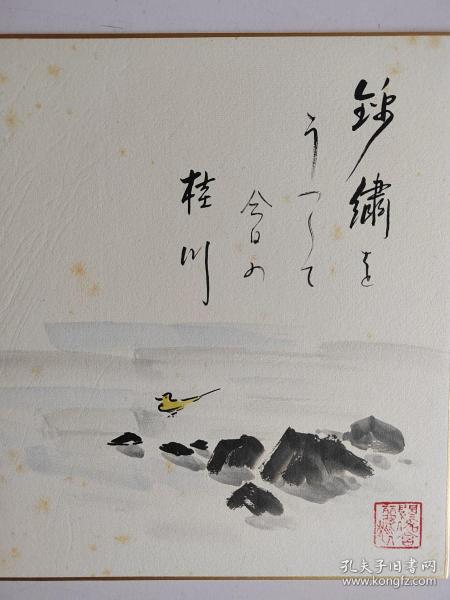 錦繍を
うつして
今日の
桂川
孔夫子旧书网
www.kongfz.com